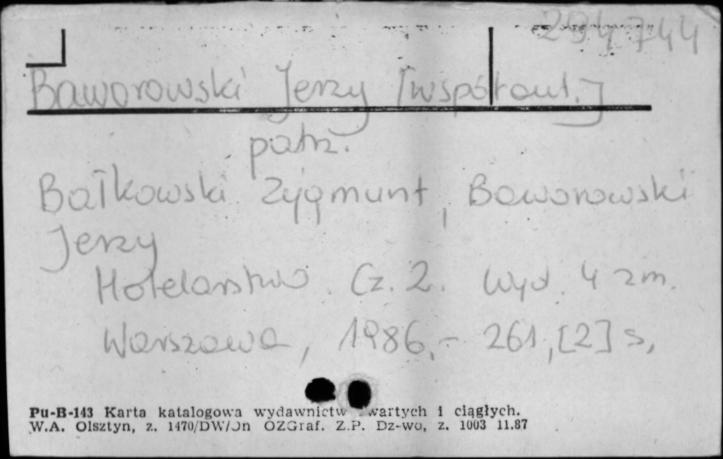 294744
Baworowski Jerzy [współaut.]
patrz.
Bałkowski Zygmunt, Baworowski
Jerzy
Hotelarstwo. Cz. 2. Wyd. 4 zm.
Warszawa, 1986.- 261,[2] s,
Pu-B-143 Karta katalogowa wydawnictw zwartych i ciągłych.
W.A. Olsztyn, z. 1470/DW/Jn OZGraf. Z.P. Dz-wo, z. 1003 11.87